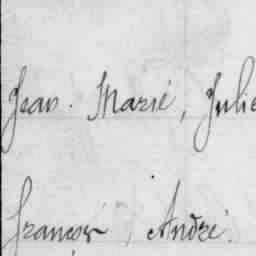 Jean. Marie, Julie
François, André.